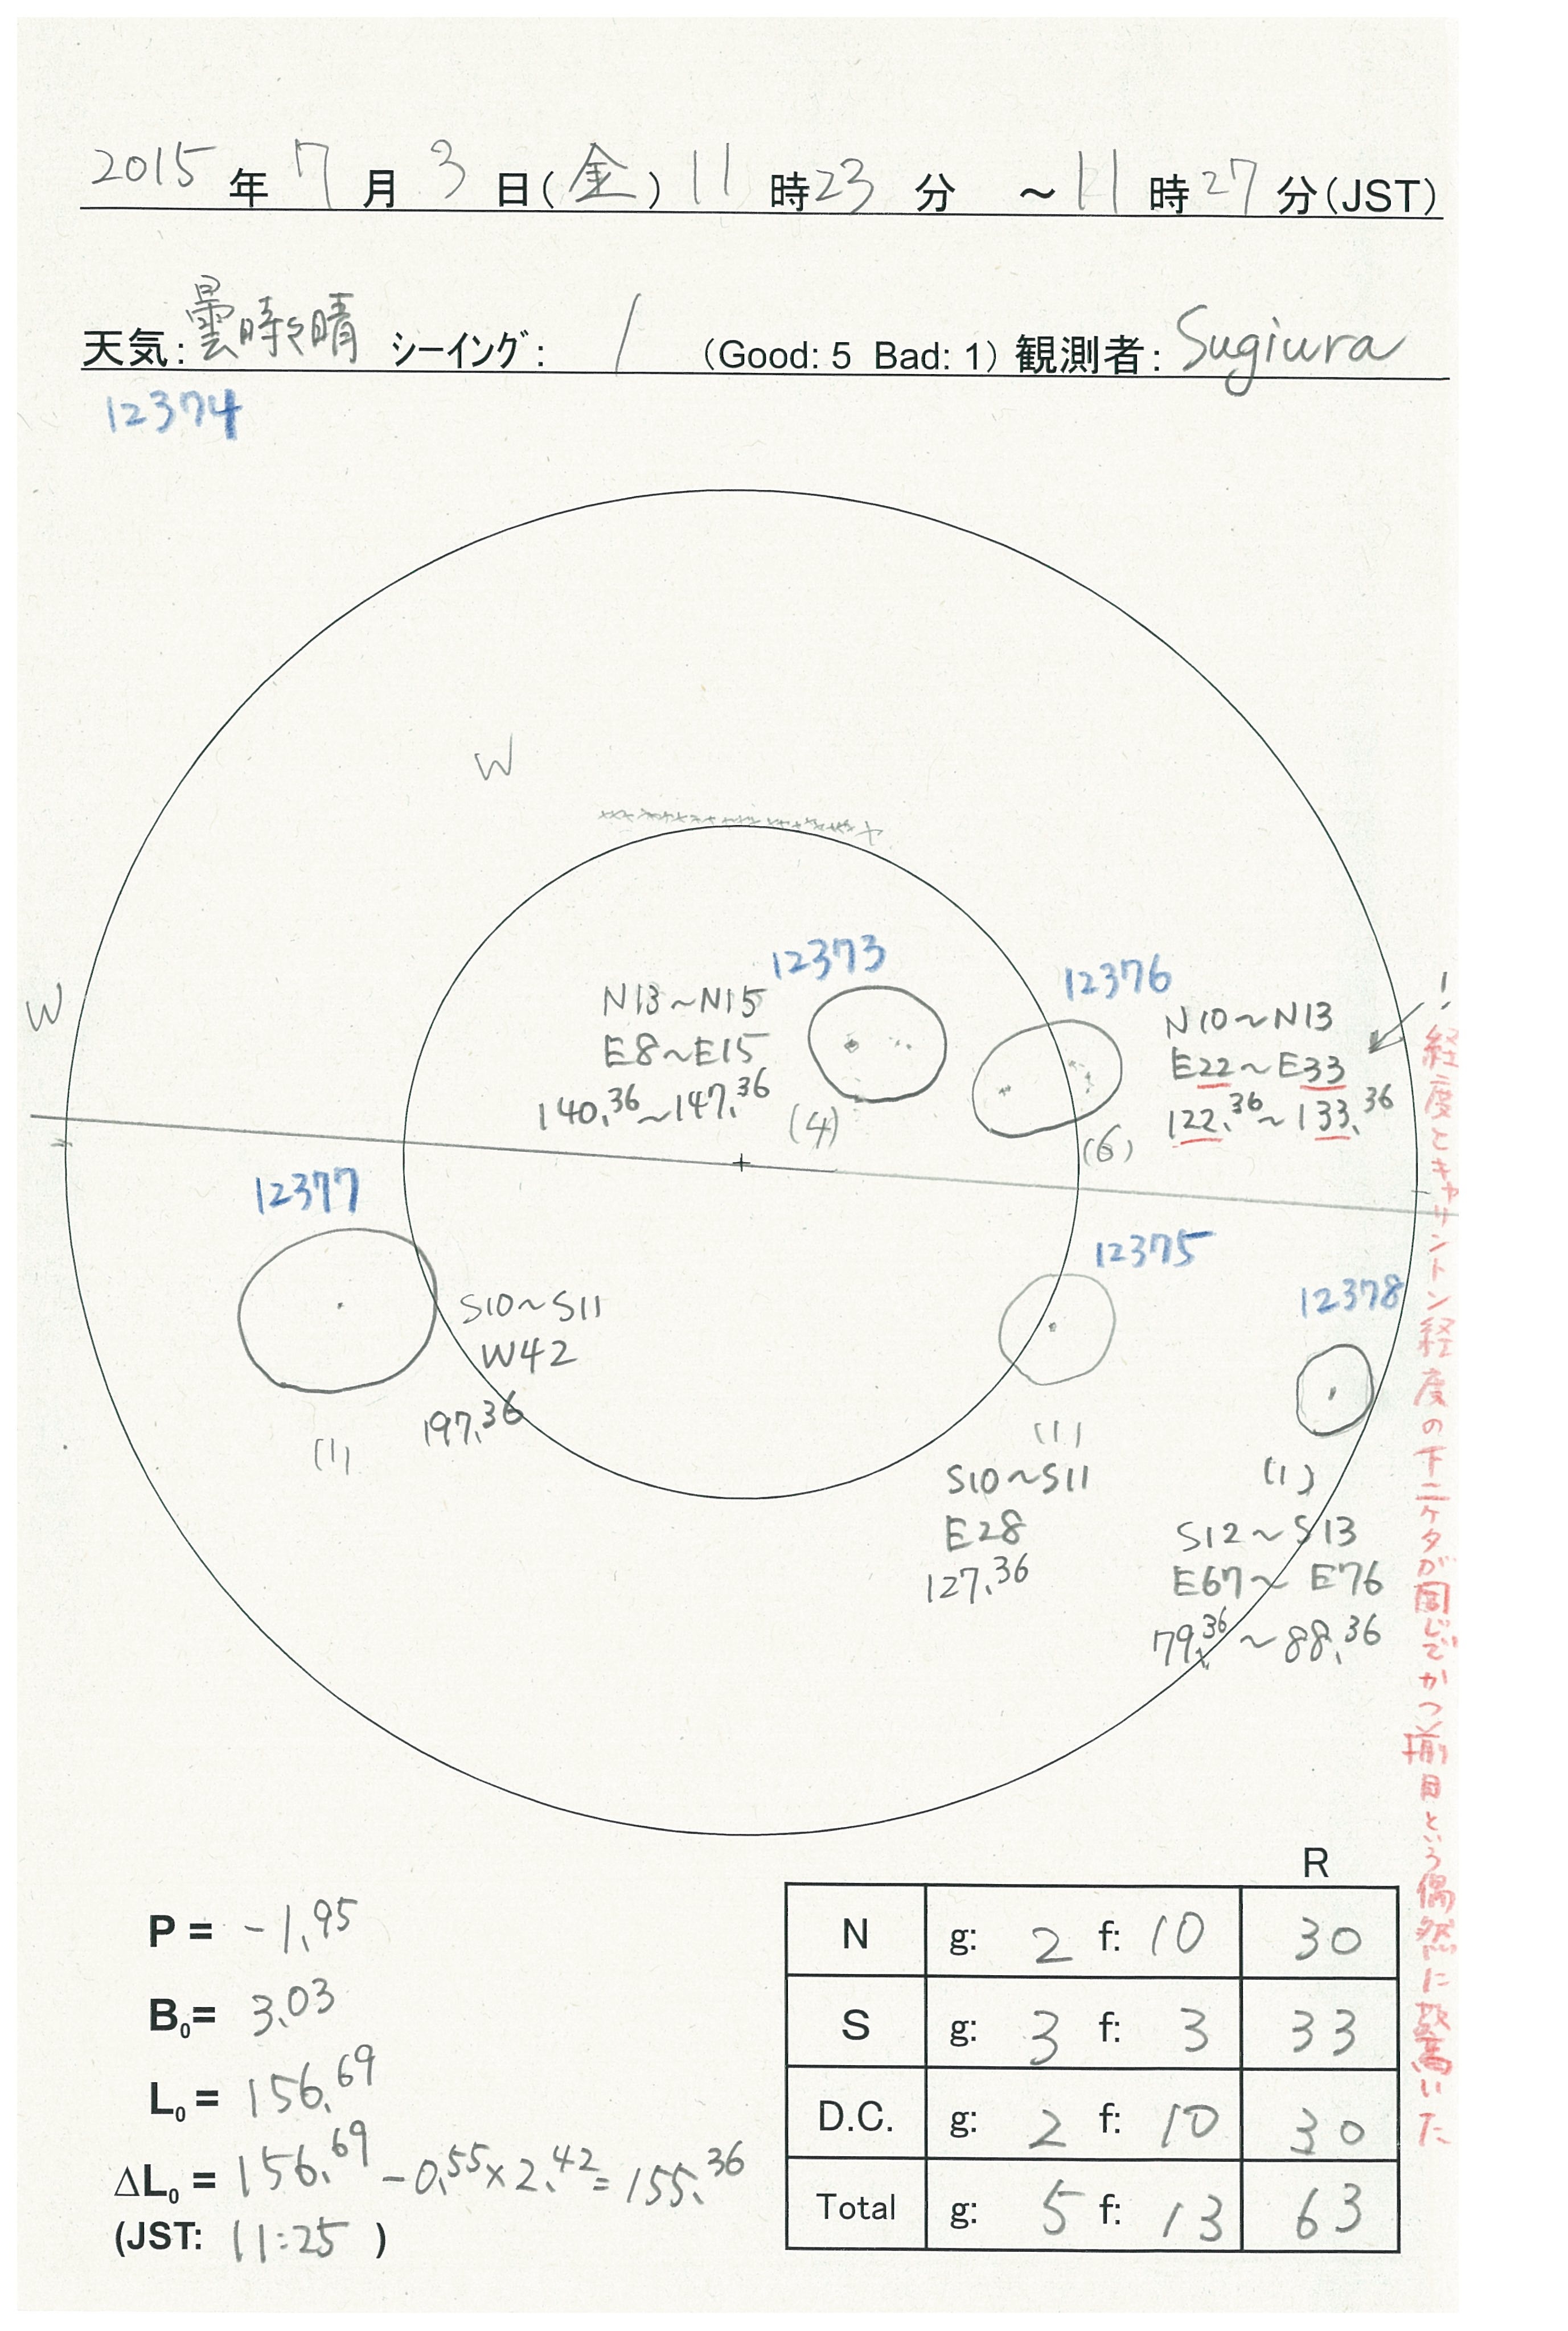 2015年 7月 3日(金) 11時23分 ～11時27分(JST)
天気: 曇時々晴 シーイング: 1 (Good: 5 Bad: 1) 観測者: Sugiura
12374
W
12373
N13～N15
E8～E15
140.36～147.36
(4)
12376
N10～N13
E22～E33
122.36～133.36
(6)
!
経度とキャリントン経度の下二ケタが同じでかつ揃目という偶然に驚いた
W
12377
S10～S11
W42
197.36
(1)
12375
(1)
S10～S11
E28
127.36
12378
(1)
S12～S13
E67～E76
79.36～88.36
P = -1.95
B0= 3.03
L0= 156.69
ΔL0= 156.69-0.55×2.42=155.36
(JST: 11:25 )
R
N g: 2 f: 10 30
S g: 3 f: 3 33
D.C. g: 2 f: 10 30
Total g: 5 f: 13 63